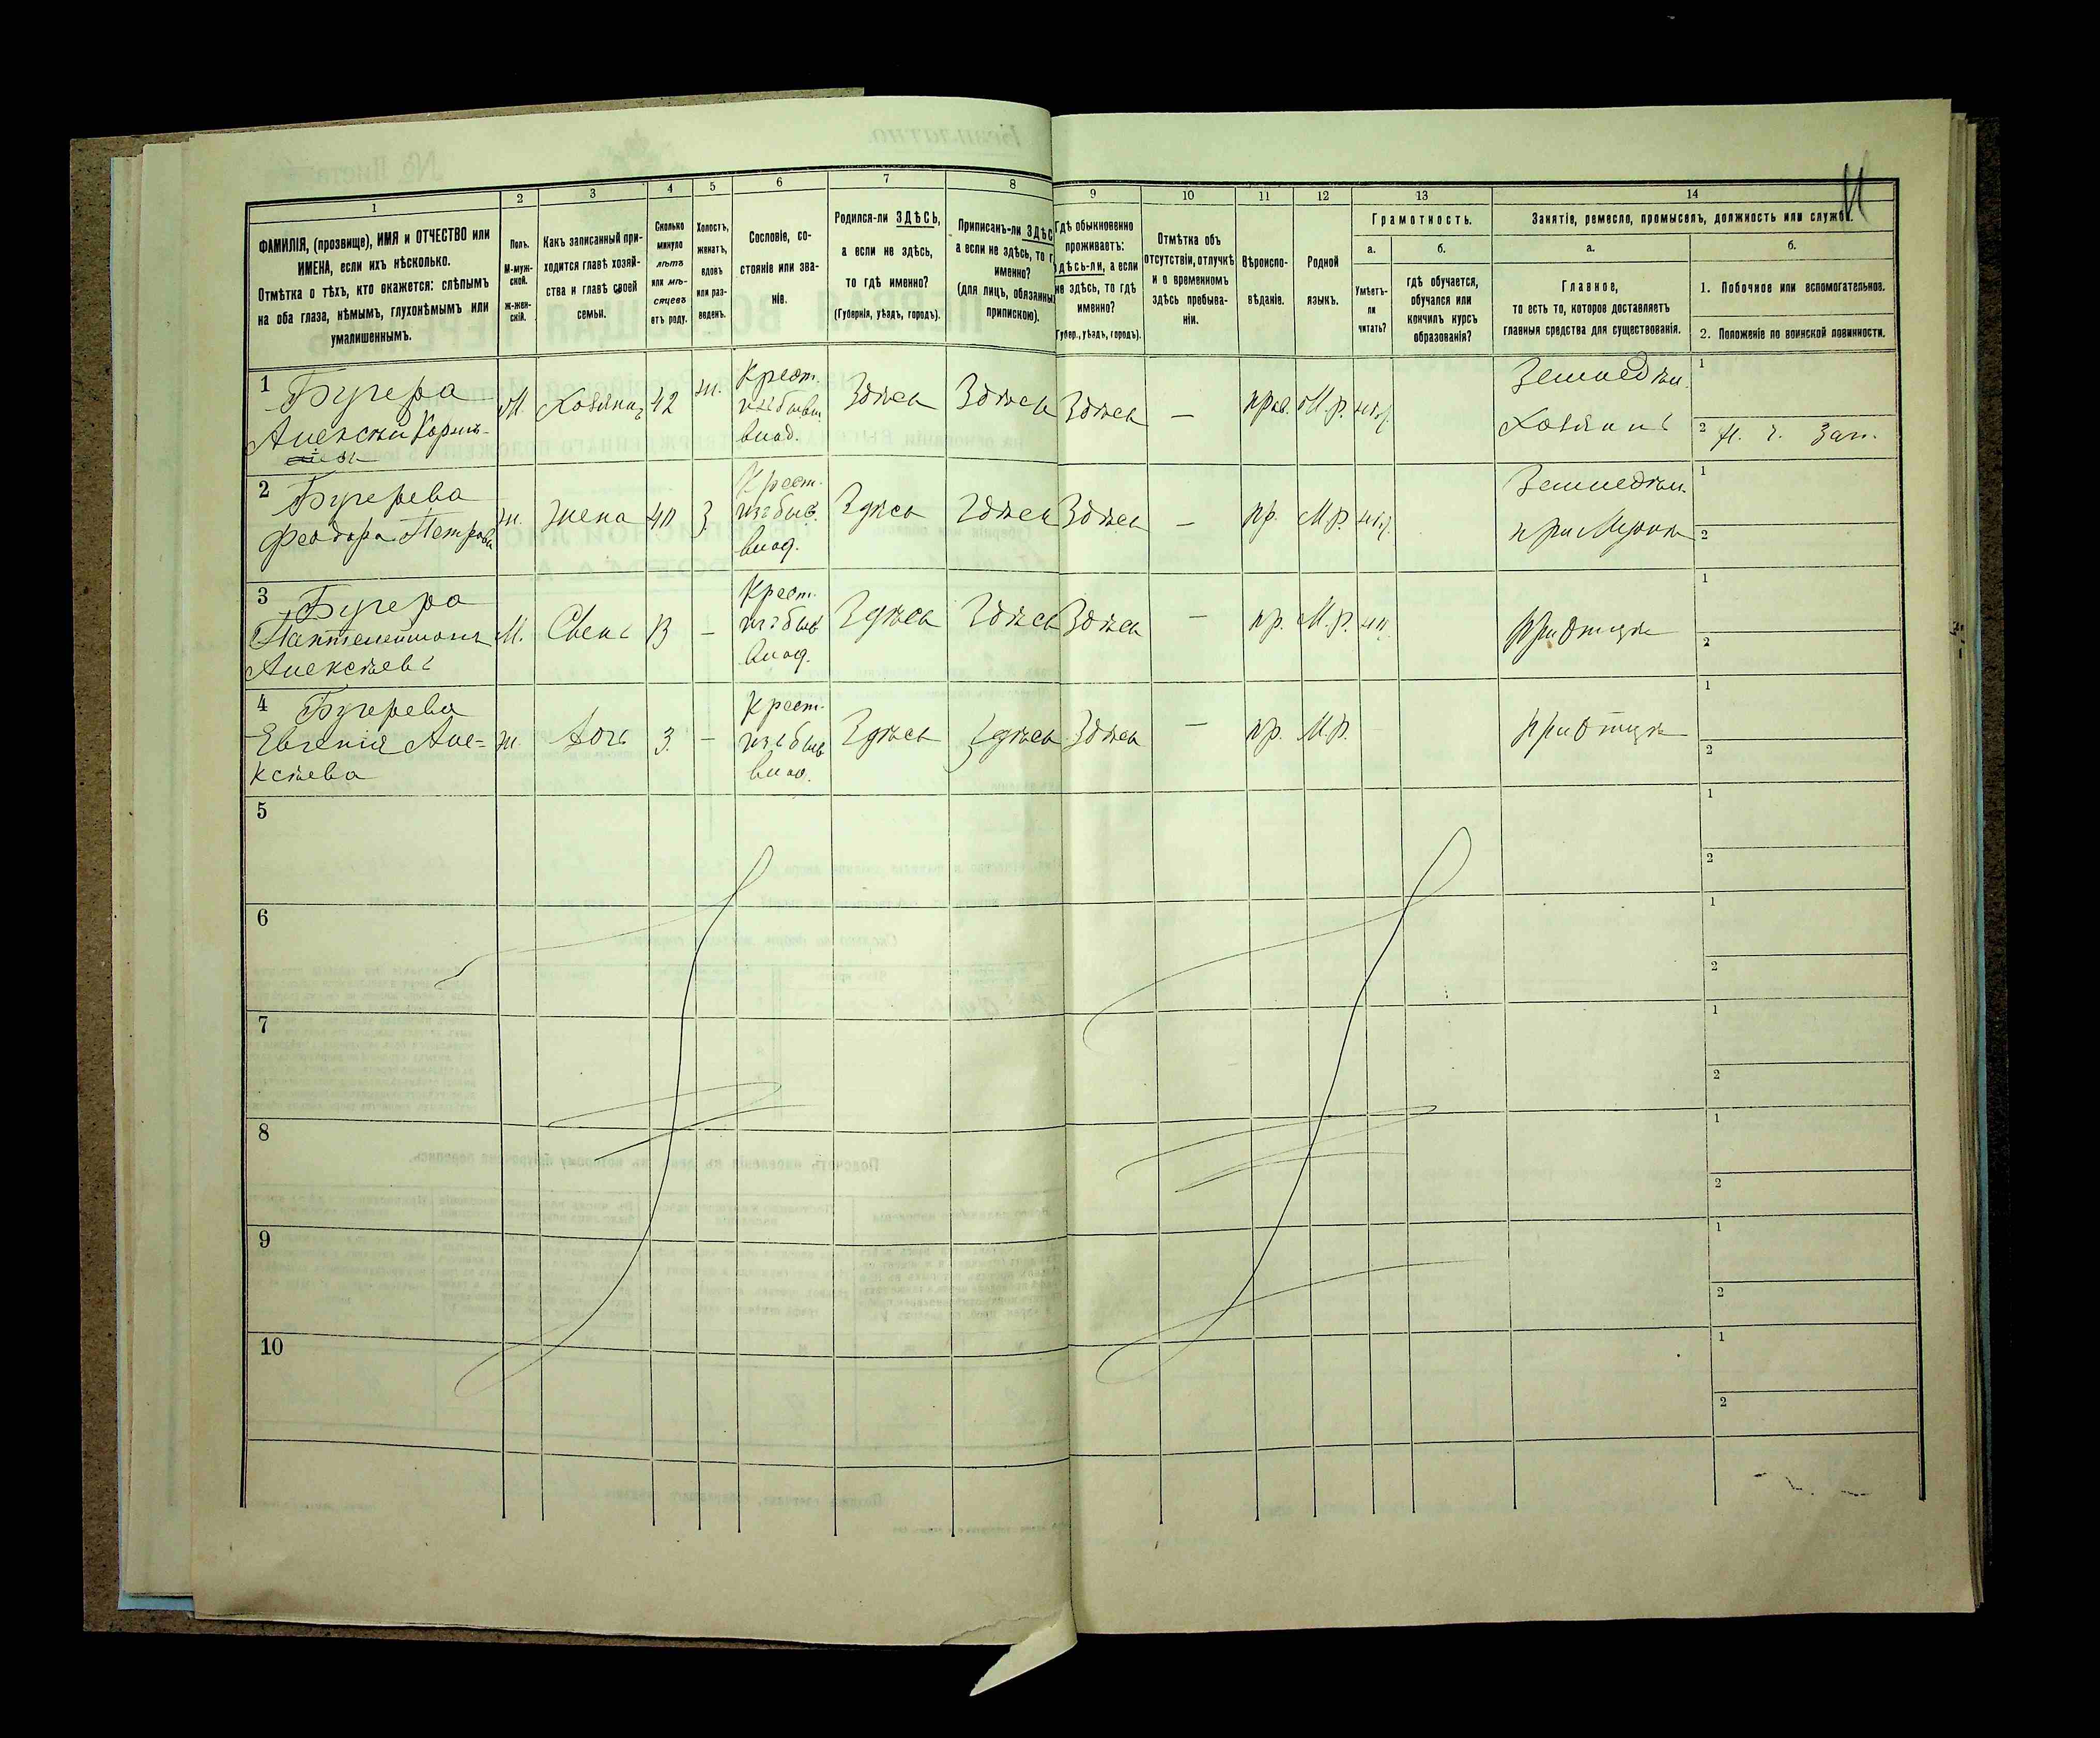 1 2 3 4 5 6 7 8 9 10 11 12 13 14
ФАМИЛІЯ, (прозвище), ИМЯ и ОТЧЕСТВО или
ИМЕНА, если ихъ нѣсколько.
Отмѣтка о тѣхъ, кто окажется: слѣпымъ
на оба глаза, нѣмымъ, глухонѣмымъ или
умалишеннымъ.
Полъ.
М-муж-
ской.
ж-жен-
скій.
Какъ записанный при-
ходится главѣ хозяй-
ства и главѣ своей
семьи.
Сколько
минуло
лѣтъ
или мѣ-
сяцевъ
отъ роду.
Холостъ,
женатъ,
вдовъ
или раз-
веденъ.
Сословіе, со-
стояніе или зва-
ніе.
Родился-ли ЗДѢСЬ,
а если не здѣсь,
то гдѣ именно?
(Губернія, уѣздъ, городъ).
Приписанъ-ли ЗДѢС
а если не здѣсь, то г
именно?
(для лицъ, обязанны
припискою).
Гдѣ обыкновенно
проживаетъ:
здѣсь-ли, а если
не здѣсь, то гдѣ
именно?
Губер., уѣздъ, городъ).
Отмѣтка объ
отсутствіи, отлучкѣ
и о временномъ
здѣсь пребыва-
ніи.
Вѣроиспо-
вѣданіе.
Родной
языкъ.
Грамотность.
а.
Умѣетъ-
ли
читать?
б.
гдѣ обучается,
обучался или
кончилъ курсъ
образованія?
Занятіе, ремесло, промыселъ, должность или служба.
а.
Главное,
то есть то, которое доставляетъ
главныя средства для существованія.
б.
1. Побочное или вспомогательное.
2. Положеніе по воинской повинности.
1 Бугера
Алексѣй
М. Хозяинъ 42 ж.
Крест.
изъ бывш.
влад.
Здѣсь Здѣсь Здѣсь — прав. М.р. нѣт
Земледѣл.
Хозяинъ
1
2 н. ч. зап.
2 Бугерева
Феодора Петрова
ж. Жена 40 з.
Крест.
изъ быв.
влад.
Здѣсь Здѣсь Здѣсь — пр. М.р. нѣт
Земледѣл.
при мужѣ
1
2
3 Бугера
Пантелеимонъ
Алексѣевъ
М. Сынъ 13 —
Крест.
изъ быв
влад.
Здѣсь Здѣсь Здѣсь — пр. М.р.
при отцѣ
1
2
4 Бугерева
Евгенія Але-
ксѣева
ж. Дочь 3 —
Крест.
изъ быв
влад.
Здѣсь Здѣсь Здѣсь — пр. М.р.
при отцѣ
1
2
5
1
2
6
1
2
7
1
2
8
1
2
9
1
2
10
1
2